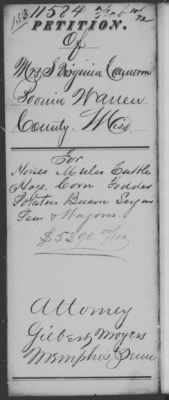 153 11584
72
PETITION.
Of
Mrs Virginia Cameron
Bovina Warren
County. Miss
For
Horses Mules Cattle
Hogs. Corn Fodder
Potatoes Bacon Sugar
Peas & Wagons.
$5390
Attorney
Gilbert Moyers
Memphis Tenn